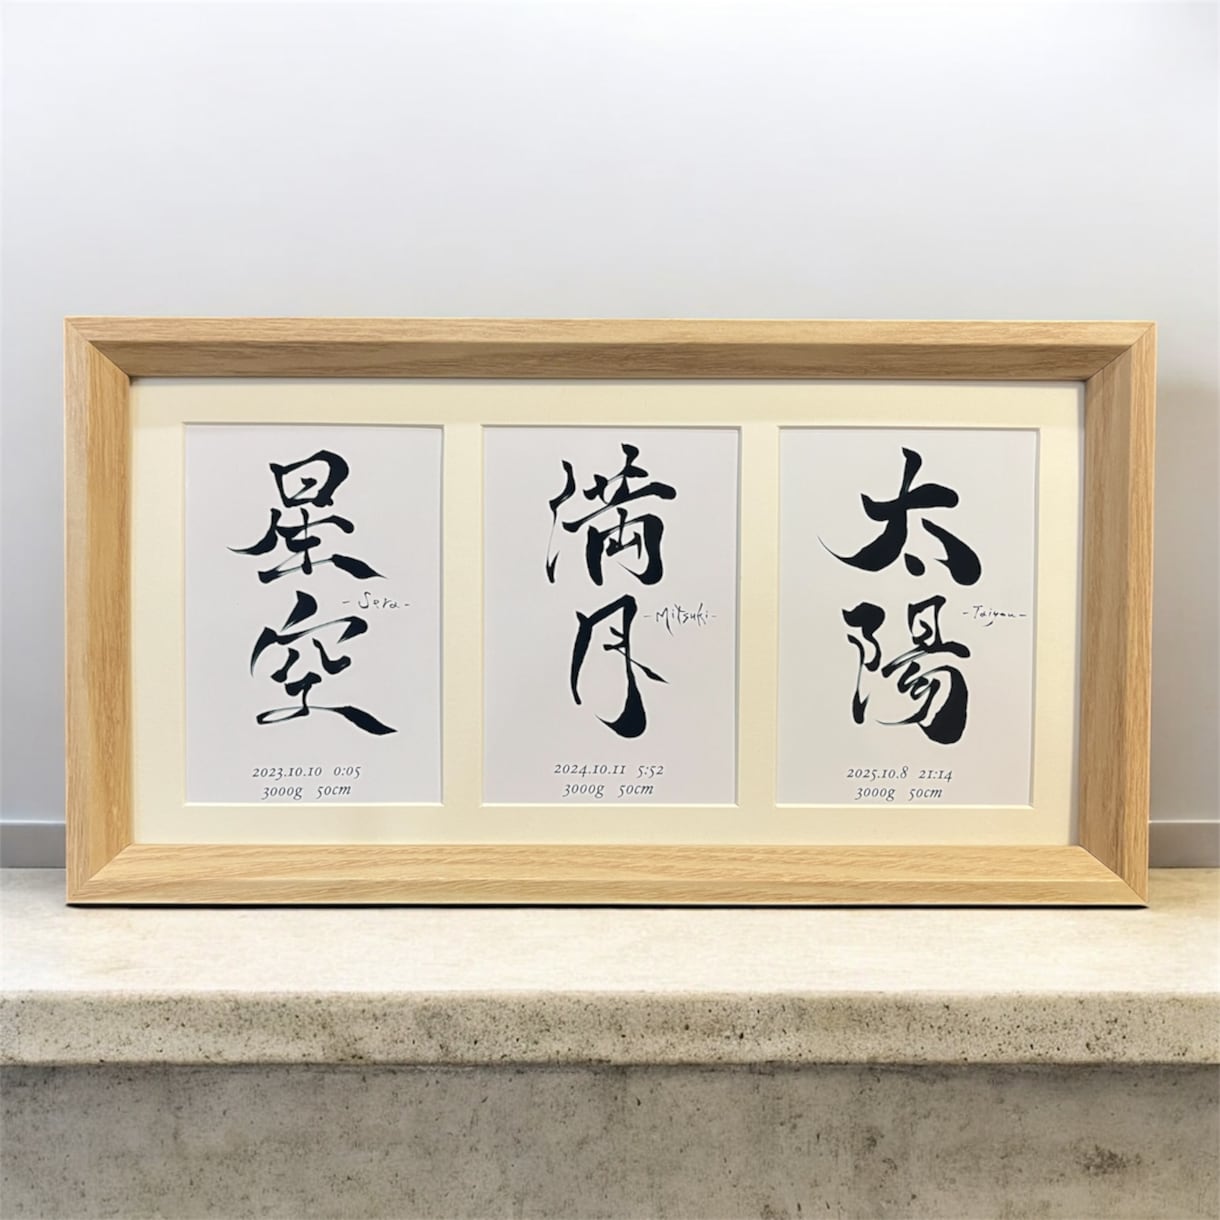 星空
-Sera-
2023.10.10 0:05
3000g 50cm
満月
-Mitsuki-
2024.10.11 5:52
3000g 50cm
太陽
-Taiyou-
2025.10.8 21:14
3000g 50cm